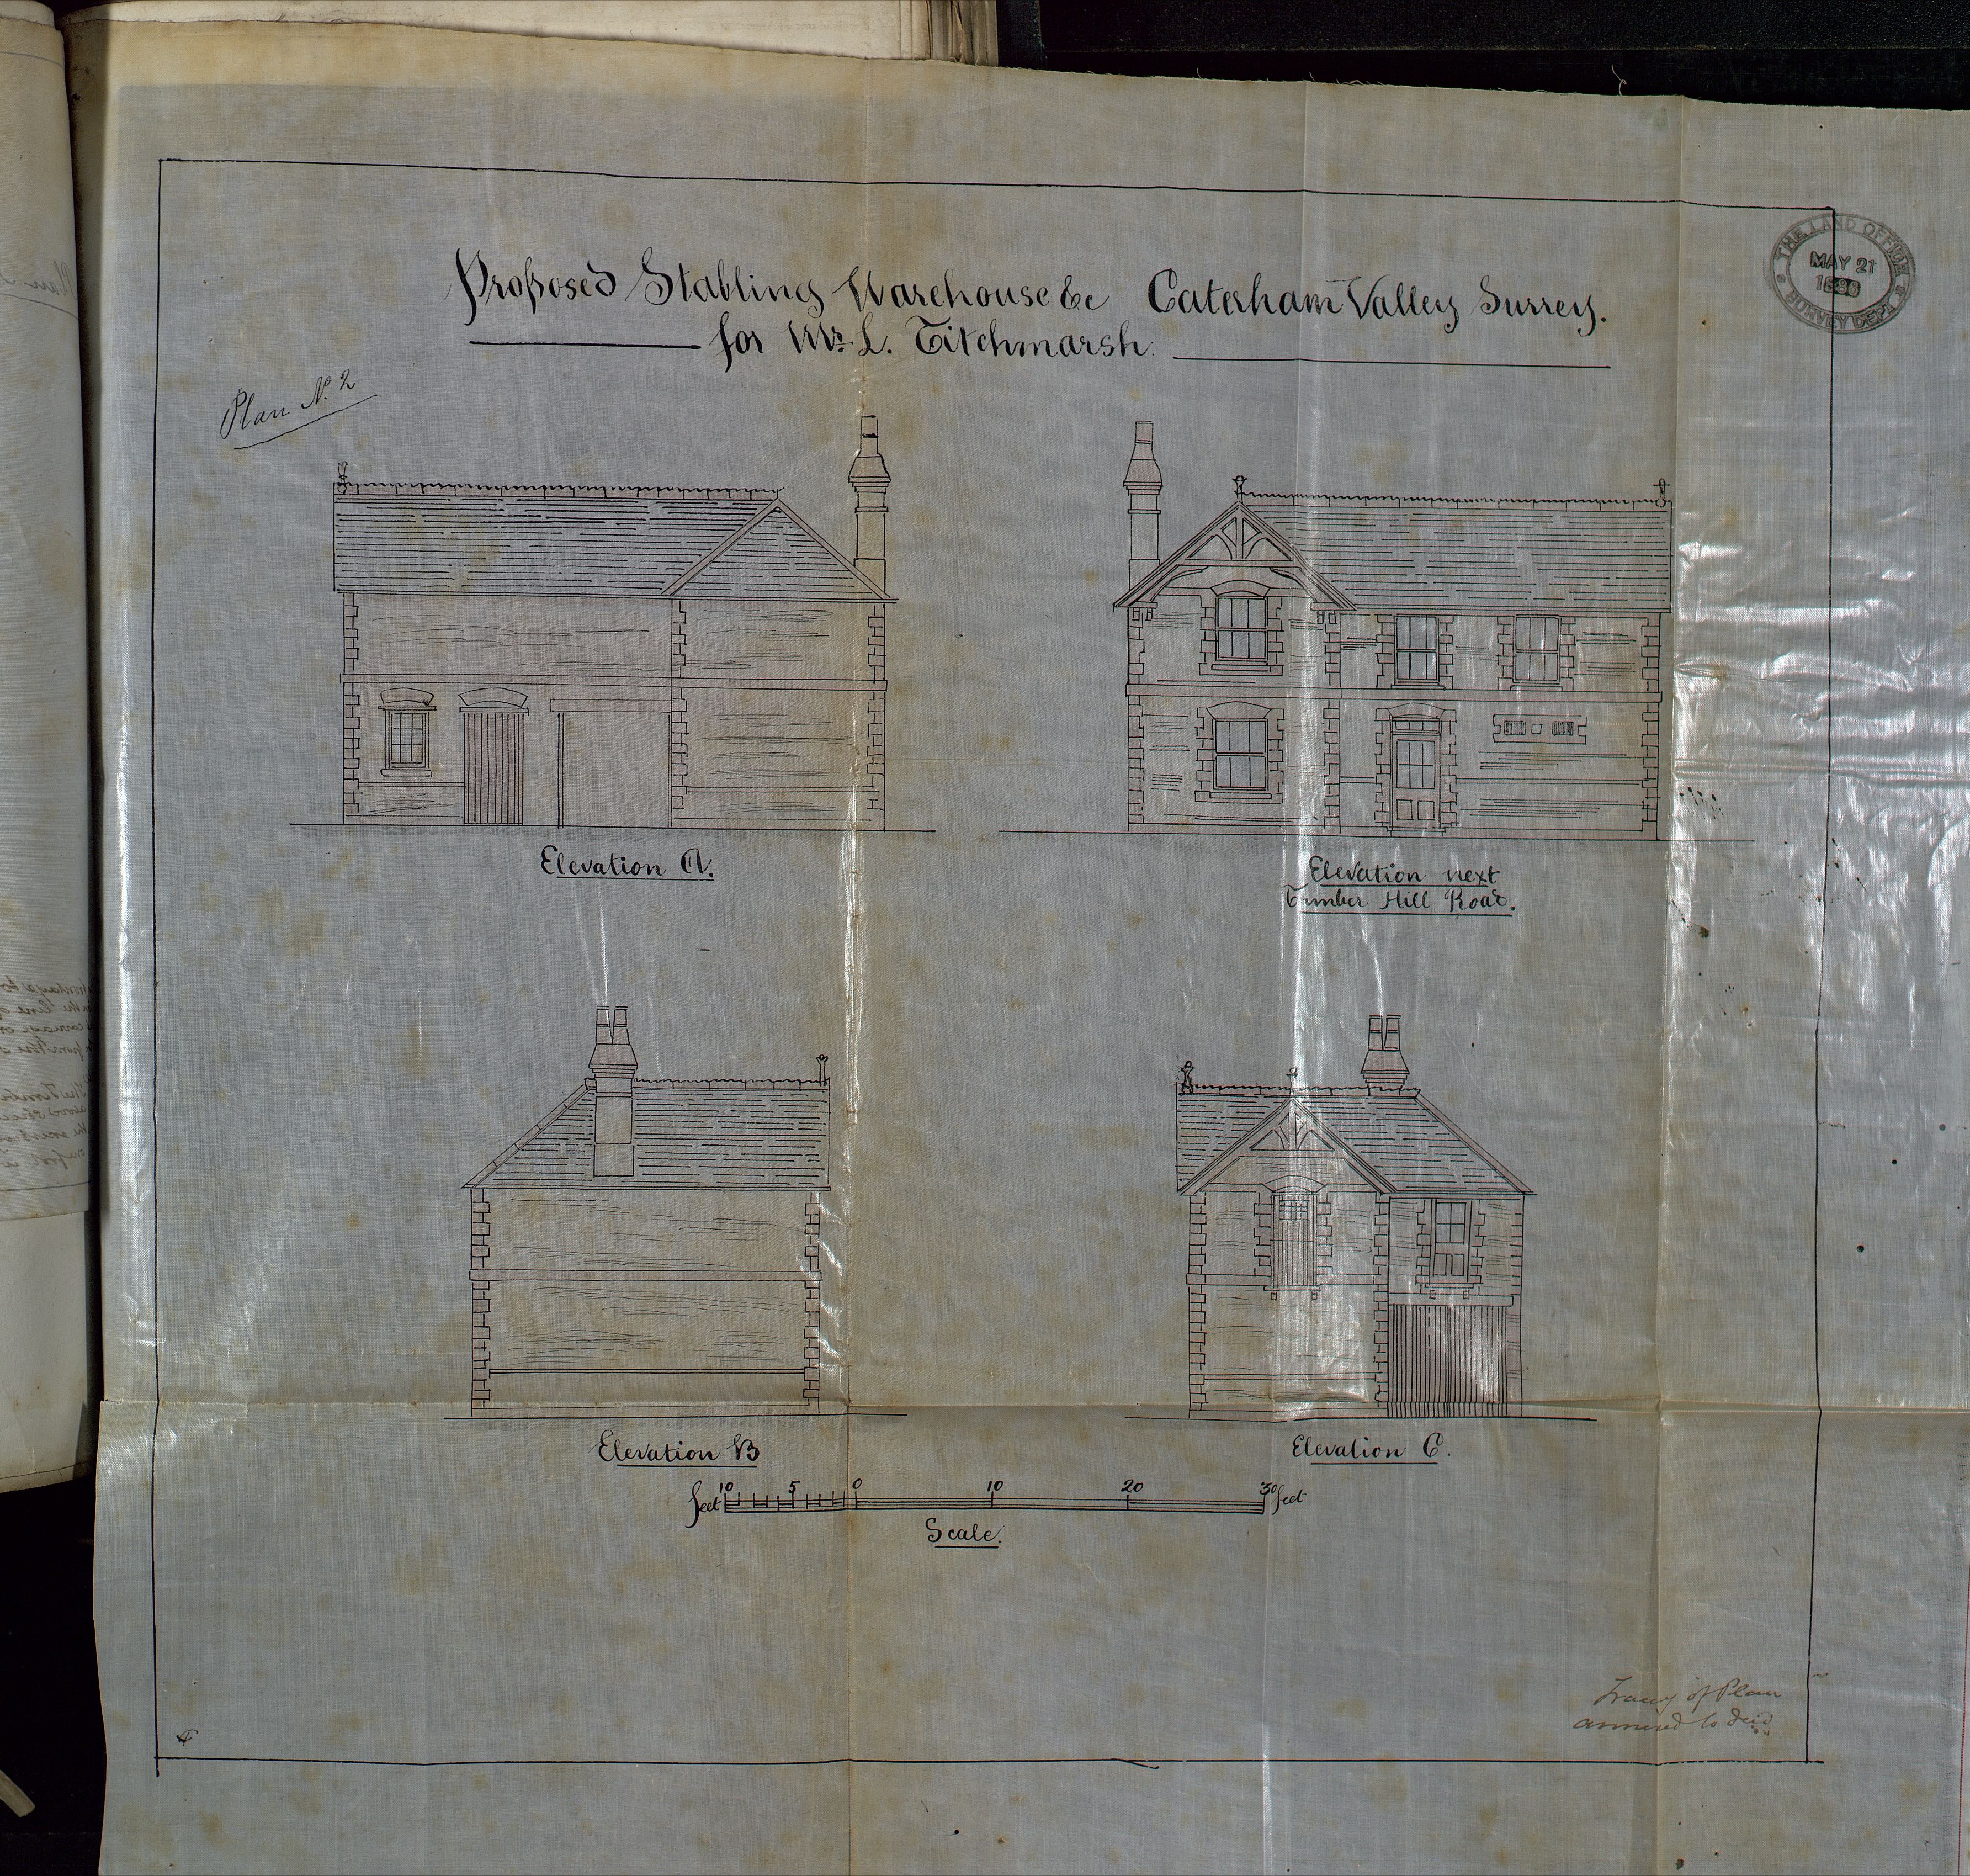 Proposed Stabling Warehouse &c Caterham Valley Surrey.
for Mr. L. Titchmarsh.
THE LAND OFFICE
MAY 21
SURVEY DEPT.
Plan No. 2
Elevation A.
Elevation next
Timber Hill Road.
Elevation B
Elevation C.
feet 10 5 0 10 20 30 feet
Scale.
Tracing of Plan
annexed to deed